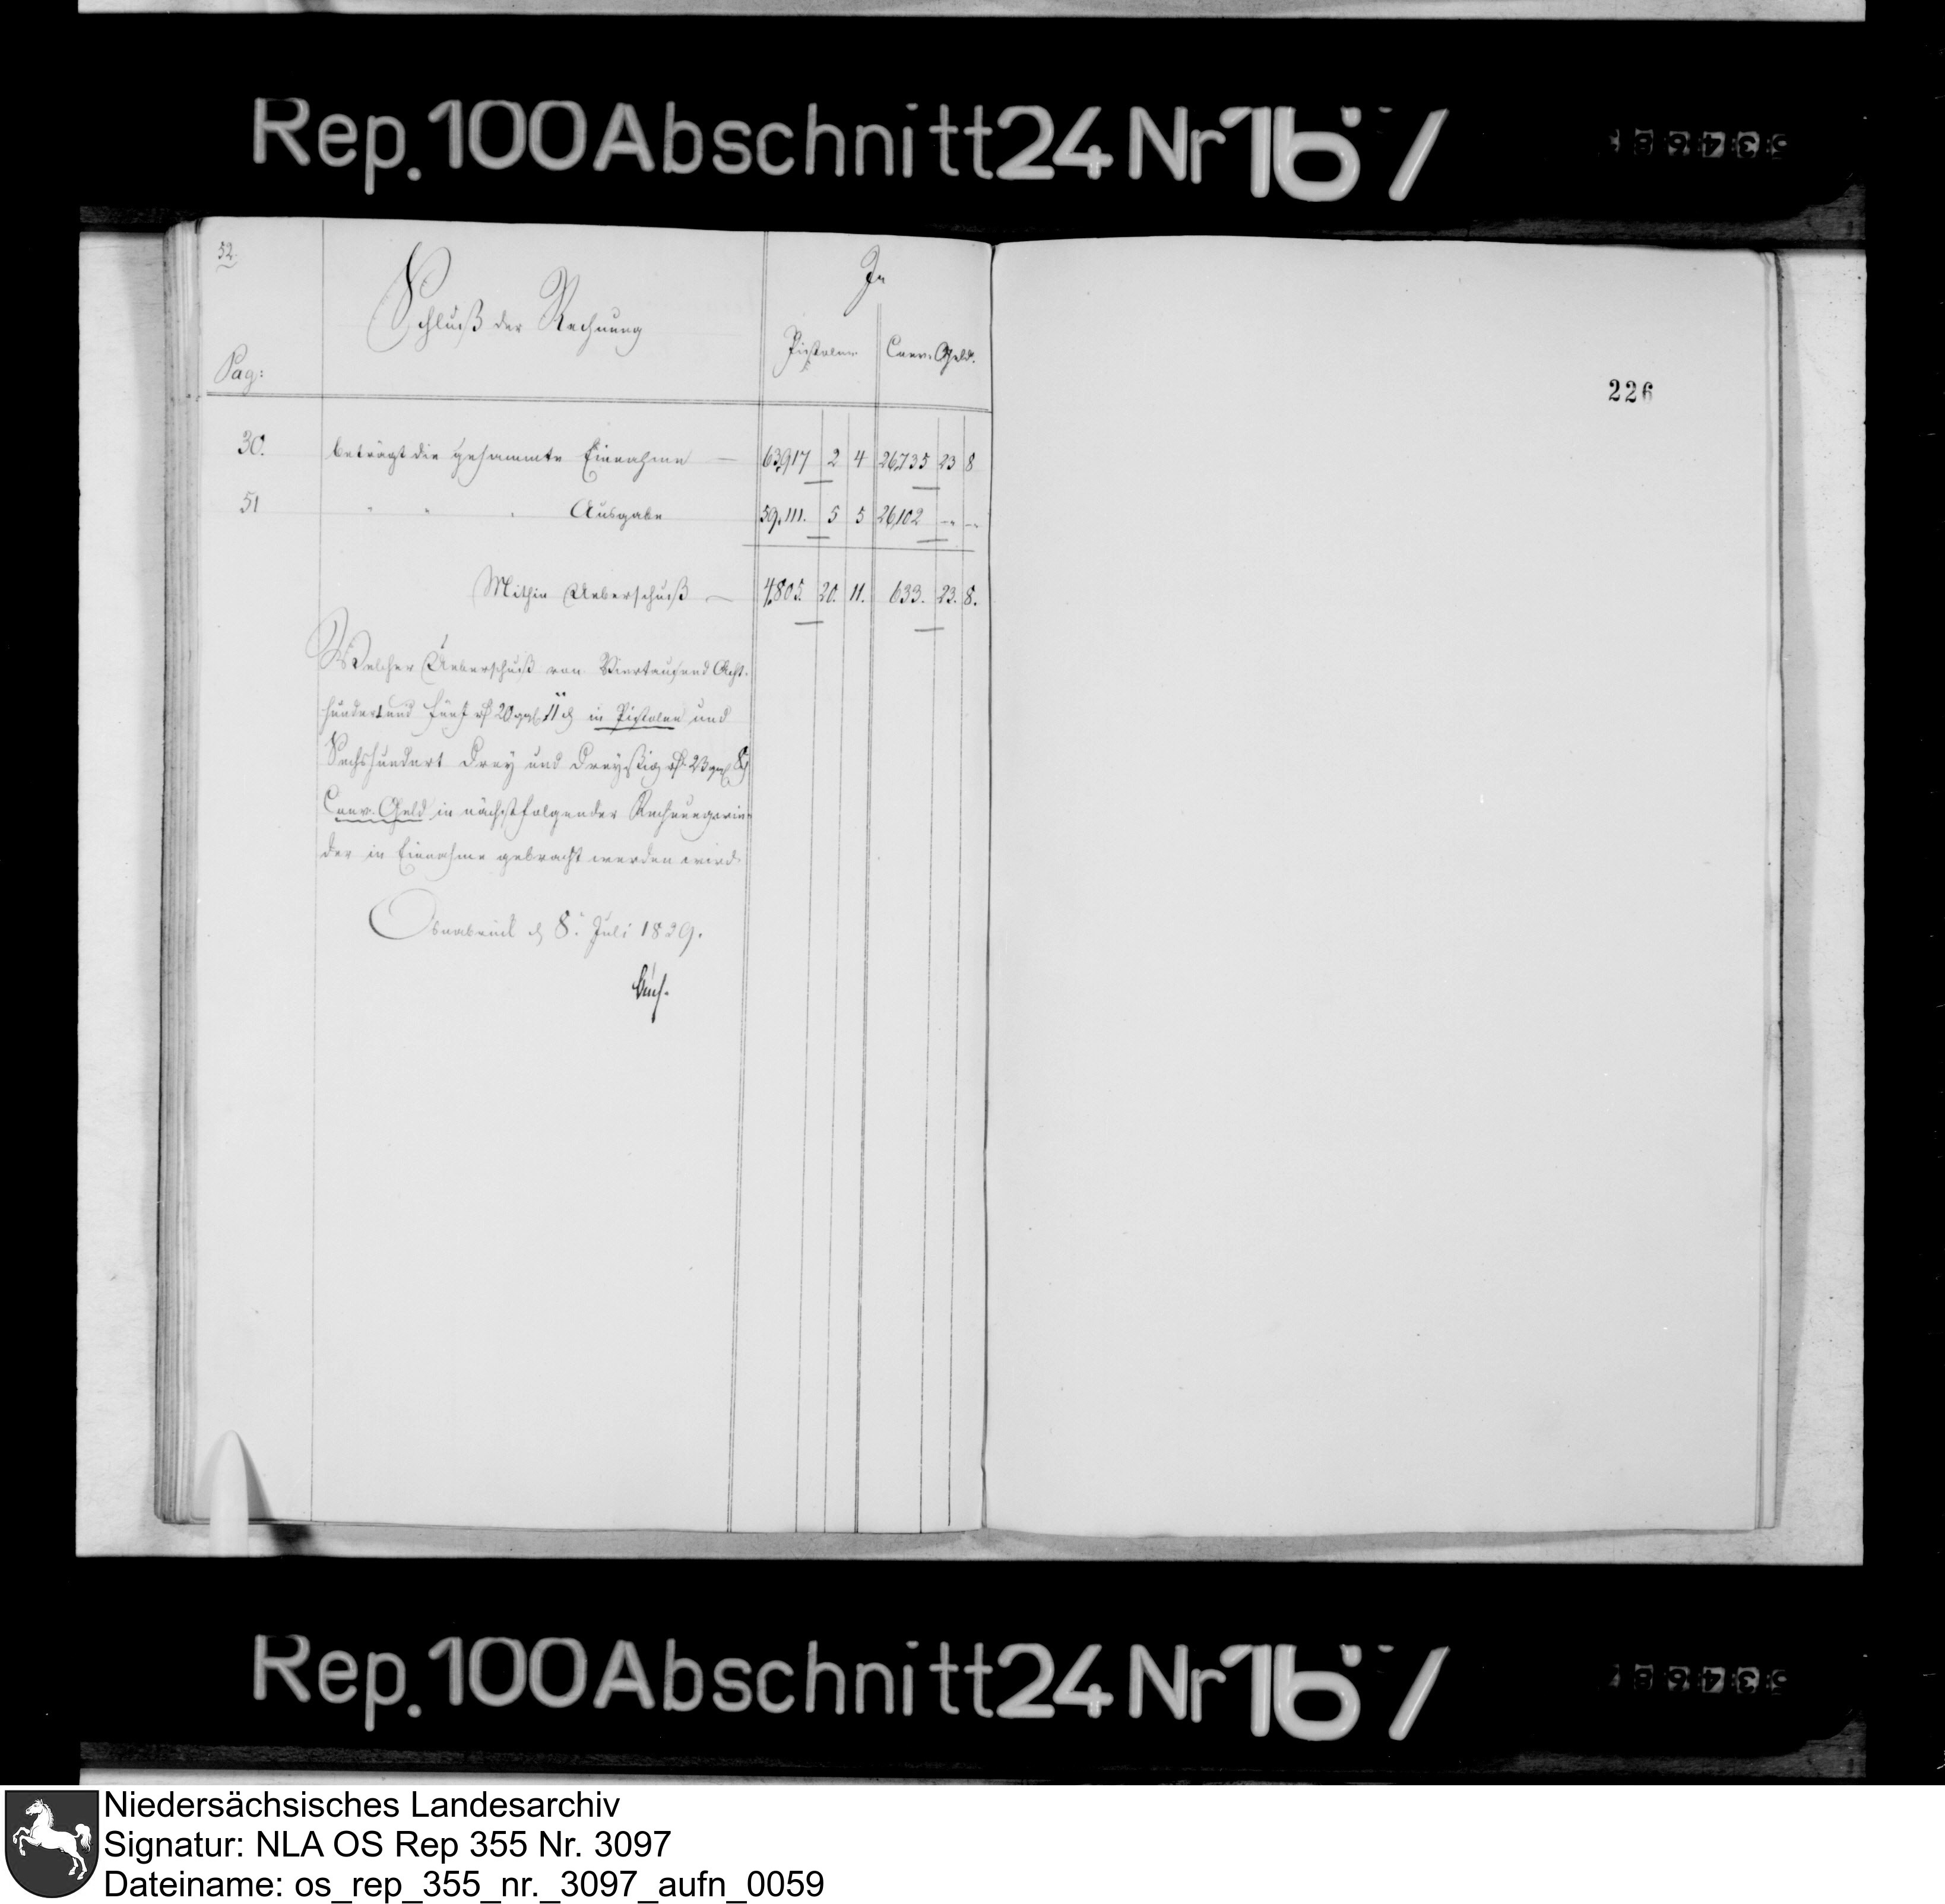 Rep. 100 Abschnitt 24 Nr 167
52.
Schluß der Rechnung
In
Pistolen
Conv. Geld.
Pag:
30. beträgt die gesammte Einnahme — 63,917 2 4 26,735 23 8
51 " " " Ausgabe 59,111. 5 5 26,102 -- --
Mithin Ueberschuß — 4,805. 20. 11. 633. 23. 8.
Welcher Ueberschuß von Viertausend Acht-
hundert und fünf rℓ 20 ggl 11 ₰ in Pistolen und
Sechshundert Drey und Dreyßig rℓ 23 ggl 8 ₰
Conv. Geld in nächstfolgender Rechnung wie-
der in Einnahme gebracht werden wird.
Osnabrück d 8. Juli 1829.
226
Rep. 100 Abschnitt 24 Nr 167
Niedersächsisches Landesarchiv
Signatur: NLA OS Rep 355 Nr. 3097
Dateiname: os_rep_355_nr._3097_aufn_0059